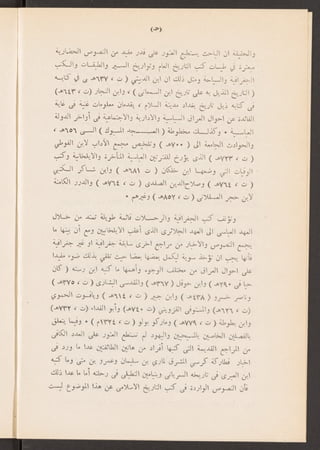 (ص)
والحقيقة ان الباحث يستطيع العثور على قدر مفيد من النصوص الحضارية
مبعثرة في طيات كتب التاريخ العام وتواريخ السير والطبقات والكتب
الجغرافية والسياحة ومثل ذلك ان ابن الدبيثي ( ت ، ٦٣٧هـ ) في كتابه
( التاريخ المذيل به على تاريخ ابن السمعاني ) ، وابن النجار ( ت ، ٦٤٣هـ )
في كتابه ذيل تاريخ بغداد مدينة السلام ، يقدمان معلومات غنية في غاية
الفائدة عن احوال العراق السياسية والادارية والاجتماعية في أواخر الدولة
العباسية • وكذلك مخطوطة ( العسجد المسبوك ) الى ٦٥٦هـ ،
والحوادث الجامعة الى ( ٧٠٠هـ ) وتلخيص مجمع الآداب لابن الفوطي
( ت ، ٧٢٣هـ ) الذي يؤرخ للفترتين العباسية المتأخرة والايلخانية وكتب
الوفيات التي وضعها ابن خلكان ( ت ، ٦٨١هـ ) وابن شاكر الكتبي
( ت ، ٧٦٤هـ ) وصلاح الدين الصفدي ( ت ، ٧٦٤هـ ) والدرر الكامنة
لابن حجر العسقلاني ( ت ، ٨٥٢هـ ) وغيرهم •
وتؤلف كتب الجغرافية والرحلات قائمة طويلة تمتد من خلال
العهد العباسي الى العهد الجلائري الذي أعقب الايلخانيين ومع أن بينها ما
يجمع النصوص والاخبار من مراجع اخرى سابقة جغرافية او غير جغرافية
فأنها يجب ان تؤخذ سوية ليكمل بعضها بعضا حيث تلقي بذلك ضوء مفيدا
على احوال العراق من مختلف الوجوه وأهمها ما كتبه ابن رسته ( كان
حيا في ٢٩٠هـ ) وابن حوقل ( ٣٦٧هـ ) والمقدسي البشاري ( ت ، ٣٧٥هـ )
وناصر خسرو ( ٤٣٨هـ ) وابن جبير ( ت ، ٦١٤هـ ) وياقوت الحموي
( ت ، ٦٢٦هـ ) والمستوفي القزويني ( ت ٧٤٠هـ ) وأبو الفداء ( ت ، ٧٣٢هـ )
وابن بطوطة ( ت ، ٧٧٩هـ ) وماركو بولو ( ت ، ١٣٢٤م ) • وفيما يتعلق
بالفصلين الخاصين بالمسيحيين واليهود لم نستطع العثور على العدد الكافي
من المراجع القديمة التي كتبها أفراد من هاتين الطائفتين عدا ما ورد في
اخبار فطاركة كرسي المشرق لماري بن سليمان وعمرو بن متى وما كتبه
ابن العبري في تاريخه السرياني وبنيامين التطيلي في رحلته أما ما عدا ذلك
فأن النصوص الواردة في كتب التاريخ الاسلامي عن هذا الموضوع ليست